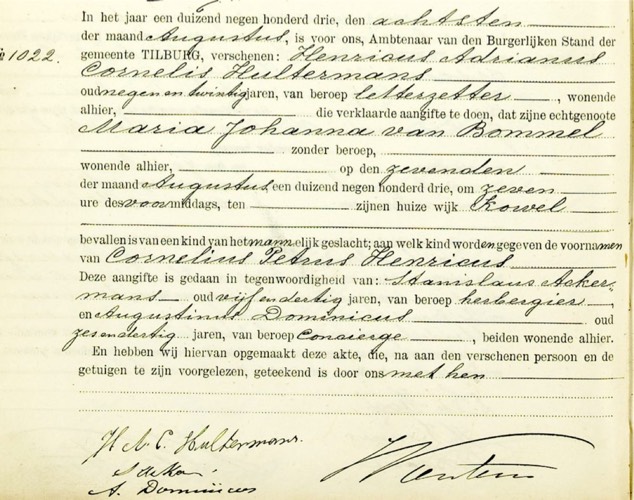 In het jaar een duizend negen honderd drie, den achtsten
der maand Augustus, is voor ons, Ambtenaar van den Burgerlijken Stand der
№ 1022. gemeente TILBURG, verschenen: Henricus Adrianus
Cornelis Hultermans
oud negen en twintig jaren, van beroep letterzetter, wonende
alhier, die verklaarde aangifte te doen, dat zijne echtgenoote
Maria Johanna van Bommel
zonder beroep,
wonende alhier, op den zevenden
der maand Augustus een duizend negen honderd drie, om zeven
ure des voormiddags, ten zijnen huize wijk Kowel
bevallen is van een kind van het mannelijk geslacht; aan welk kind worden gegeven de voornamen
van Cornelius Petrus Henricus
Deze aangifte is gedaan in tegenwoordigheid van: Stanislaus Acker-
mans oud vijf en dertig jaren, van beroep herbergier,
en Augustinus Dominicus oud
zes en dertig jaren, van beroep concierge, beiden wonende alhier.
En hebben wij hiervan opgemaakt deze akte, die, na aan den verschenen persoon en de
getuigen te zijn voorgelezen, geteekend is door ons met hen
H A C. Hultermans.
A. Dominicus